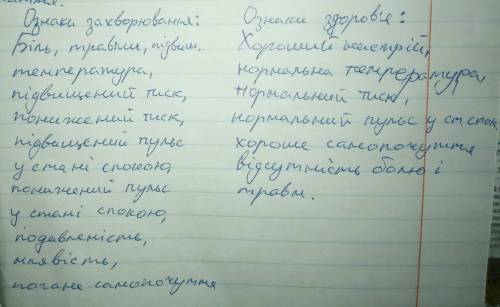 Ознаки захворювання:
Біль, травми, підвищ.
температура,
підвищений тиск,
понижений тиск,
підвищений пульс
у стані спокою,
понижений пульс
у стані спокою,
подавленість,
млявість,
погане самопочуття
Ознаки здоров'я:
Хороший настрій,
нормальна температура,
нормальний тиск,
нормальний пульс у ст. спок.
хороше самопочуття
відсутність болю і
травм.